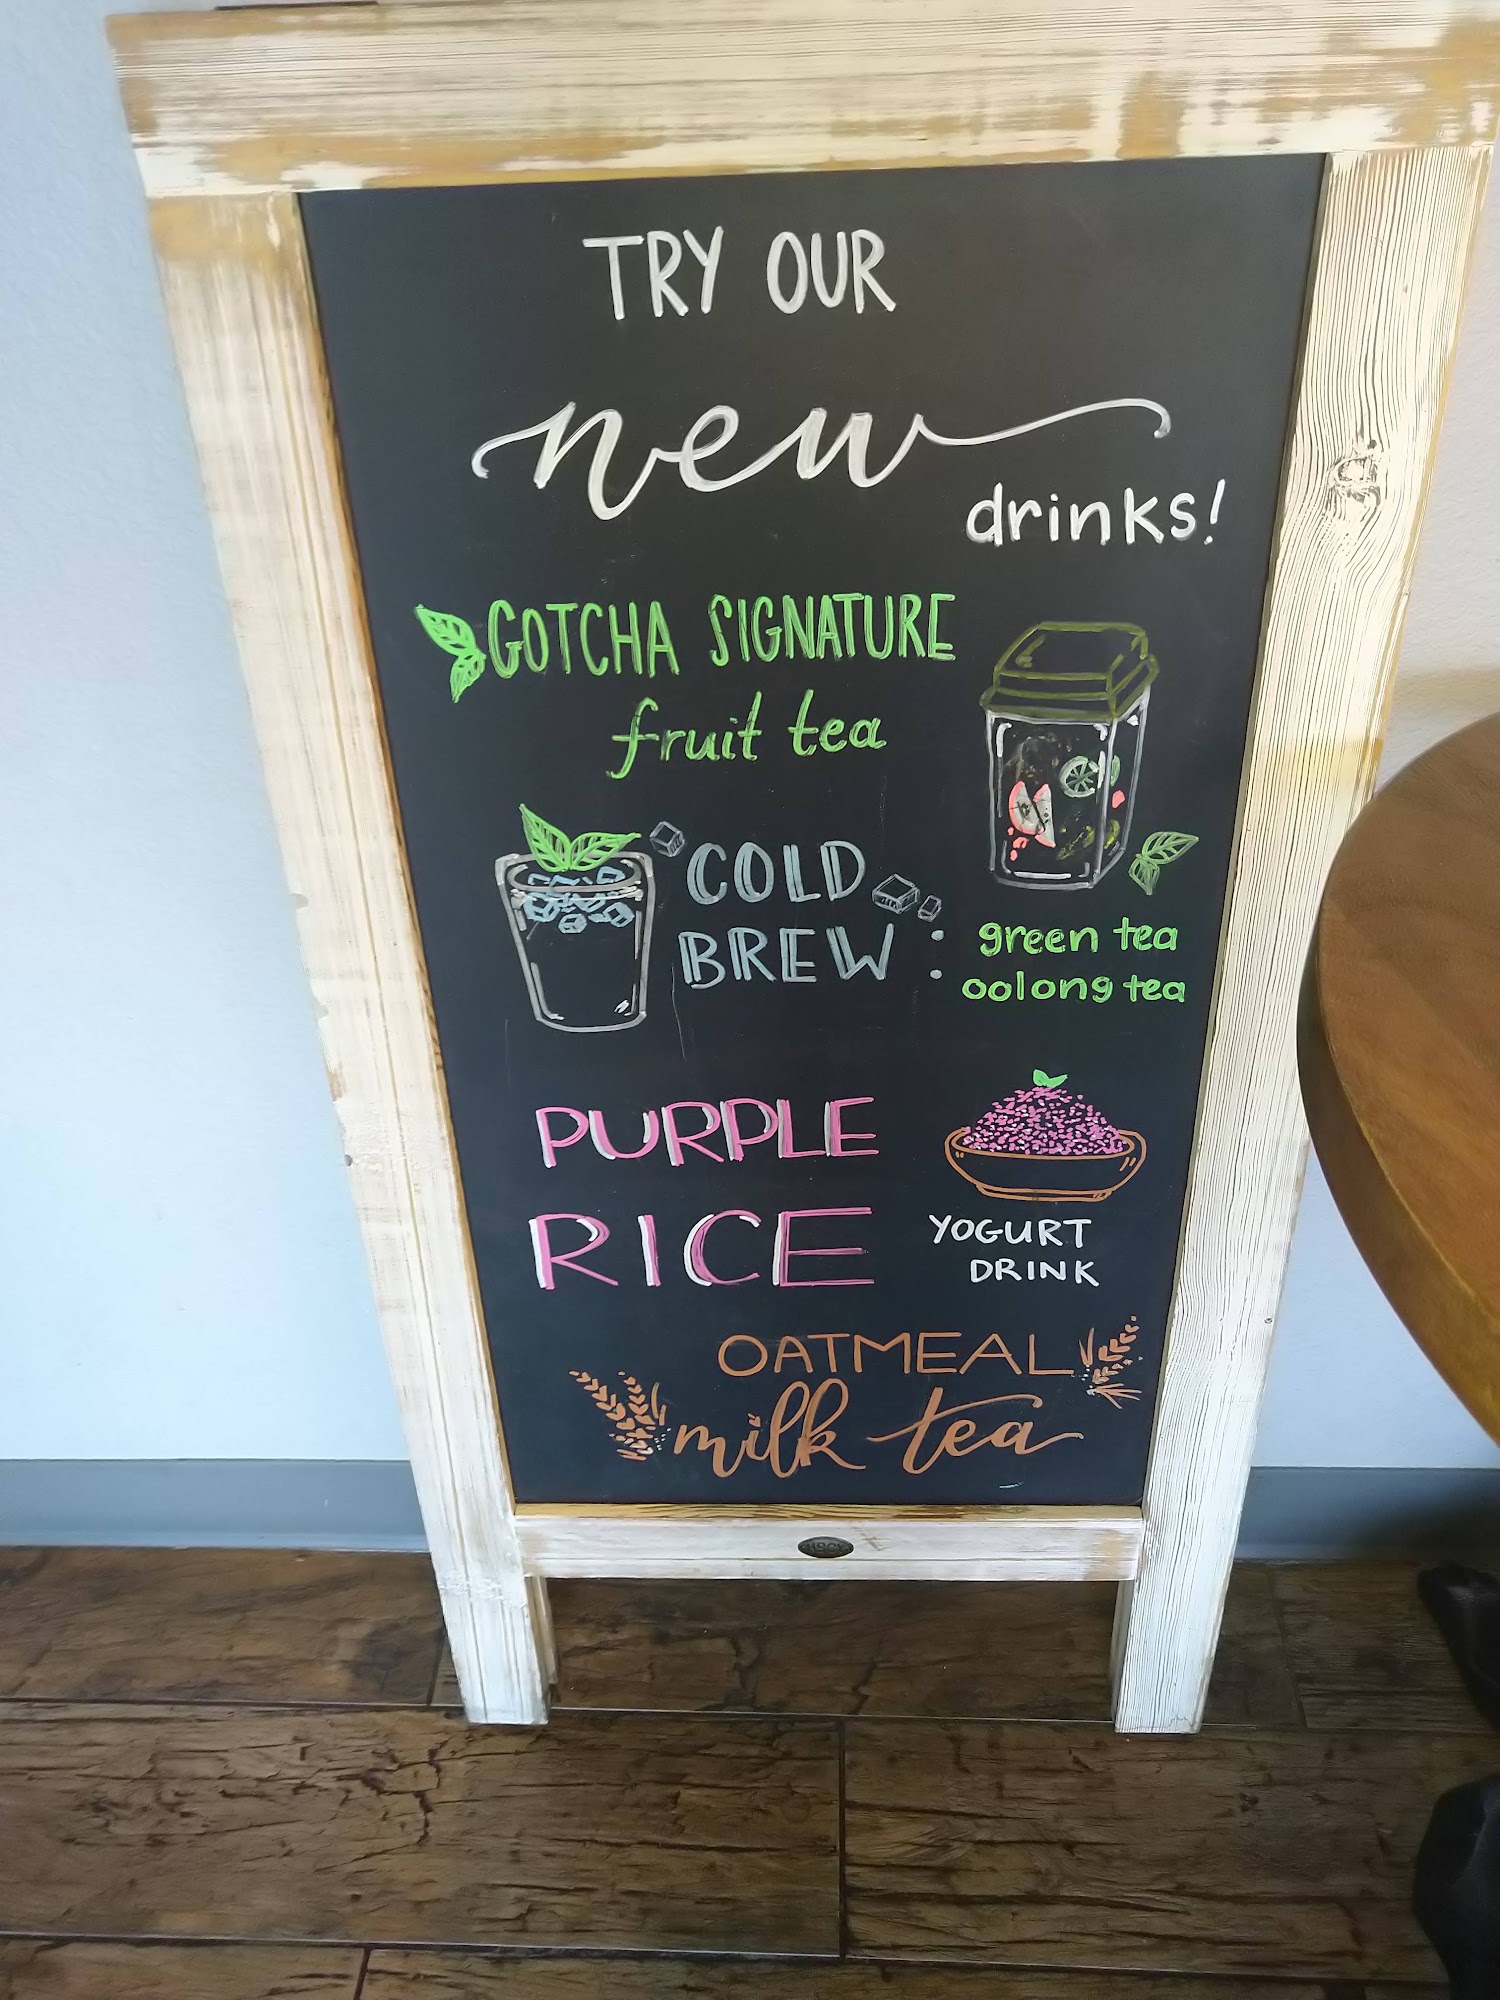 TRY OUR
new
drinks!
GOTCHA SIGNATURE
fruit tea
COLD
BREW :
green tea
oolong tea
PURPLE
RICE
YOGURT
DRINK
OATMEAL
milk tea